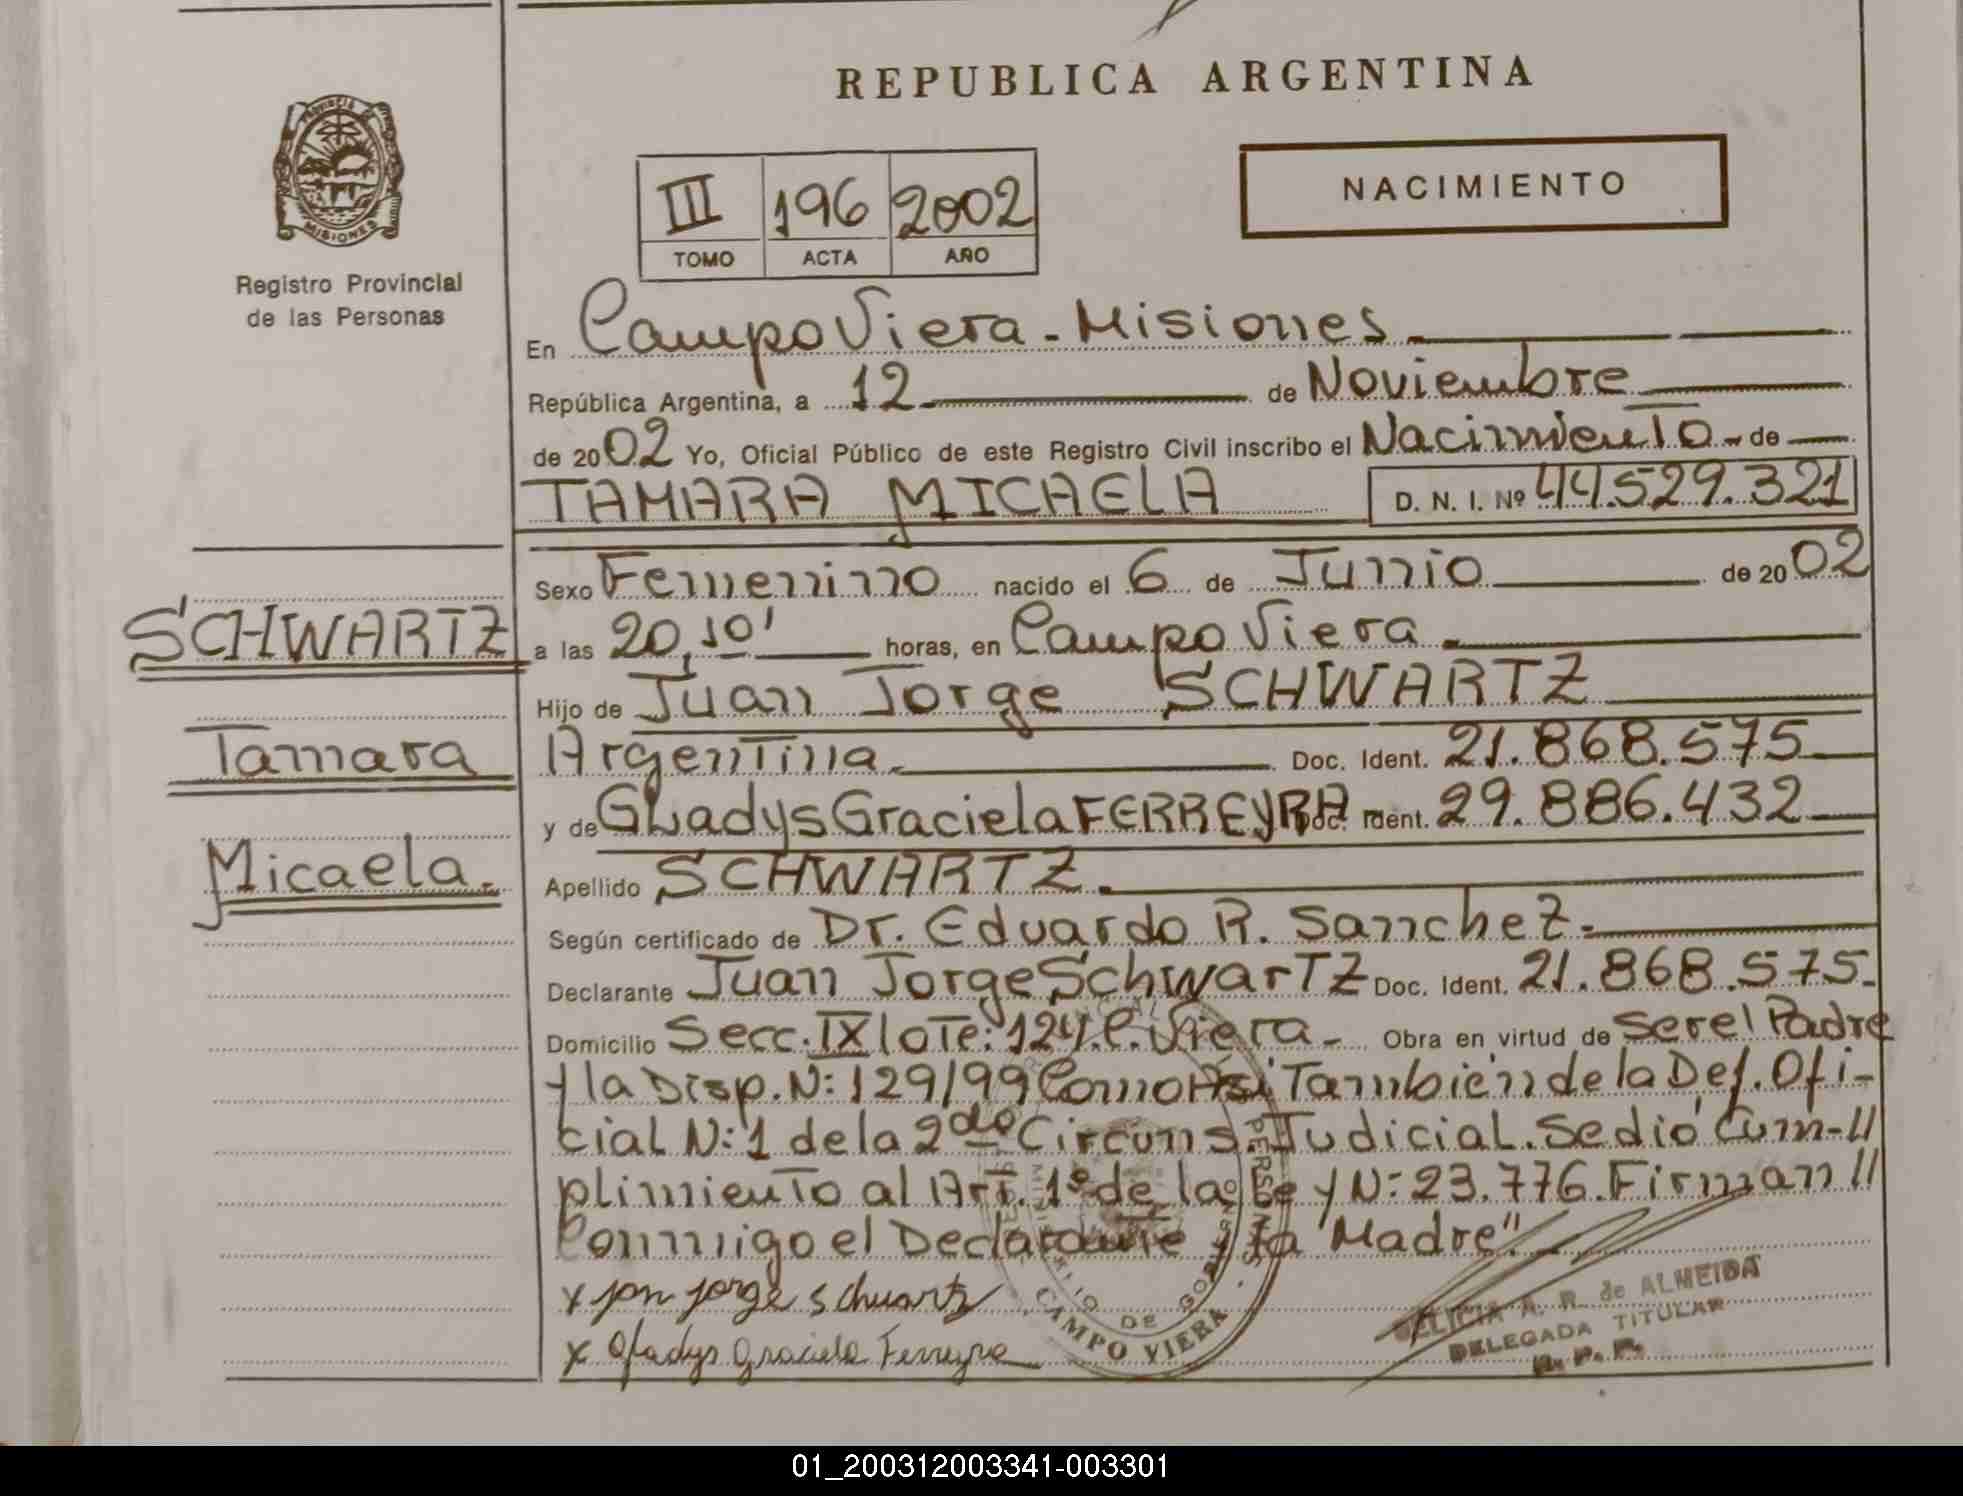 REPUBLICA ARGENTINA
PROVINCIA DE MISIONES
Registro Provincial
de las Personas
NACIMIENTO
III 196 2002
TOMO ACTA AÑO
En Campo Viera - Misiones
República Argentina, a 12 de Noviembre
de 2002 Yo, Oficial Público de este Registro Civil inscribo el Nacimiento - de
TAMARA MICAELA D. N. I. Nº 44.529.321
SCHWARTZ
Tamara
Micaela.
Sexo Femenino nacido el 6 de Junio de 2002
a las 20,10' horas, en Campo Viera
Hijo de Juan Jorge SCHWARTZ
Argentina Doc. Ident. 21.868.575
y de Gladys Graciela FERREYRA Doc. Ident. 29.886.432
Apellido SCHWARTZ.
Según certificado de Dr. Eduardo R. Sanchez.
Declarante Juan Jorge Schwartz Doc. Ident. 21.868.575.
Domicilio Secc. IX lote: 124. C. Viera - Obra en virtud de ser el Padre
y la Disp. N: 129/99 Como Así También de la Def. Ofi-
cial N: 1 de la 2da Circuns. Judicial. Se dió Cum-//
plimiento al Art. 1º de la Ley N: 23.776. Firman //
Conmigo el Declarante y la "Madre".
x Jan jorge schuartz
x Gladys Graciela Ferreyra
MINISTERIO DE GOBIERNO
CAMPO VIERA
DELICIA A. R. de ALMEIDA
DELEGADA TITULAR
R. P. P.
01_200312003341-003301